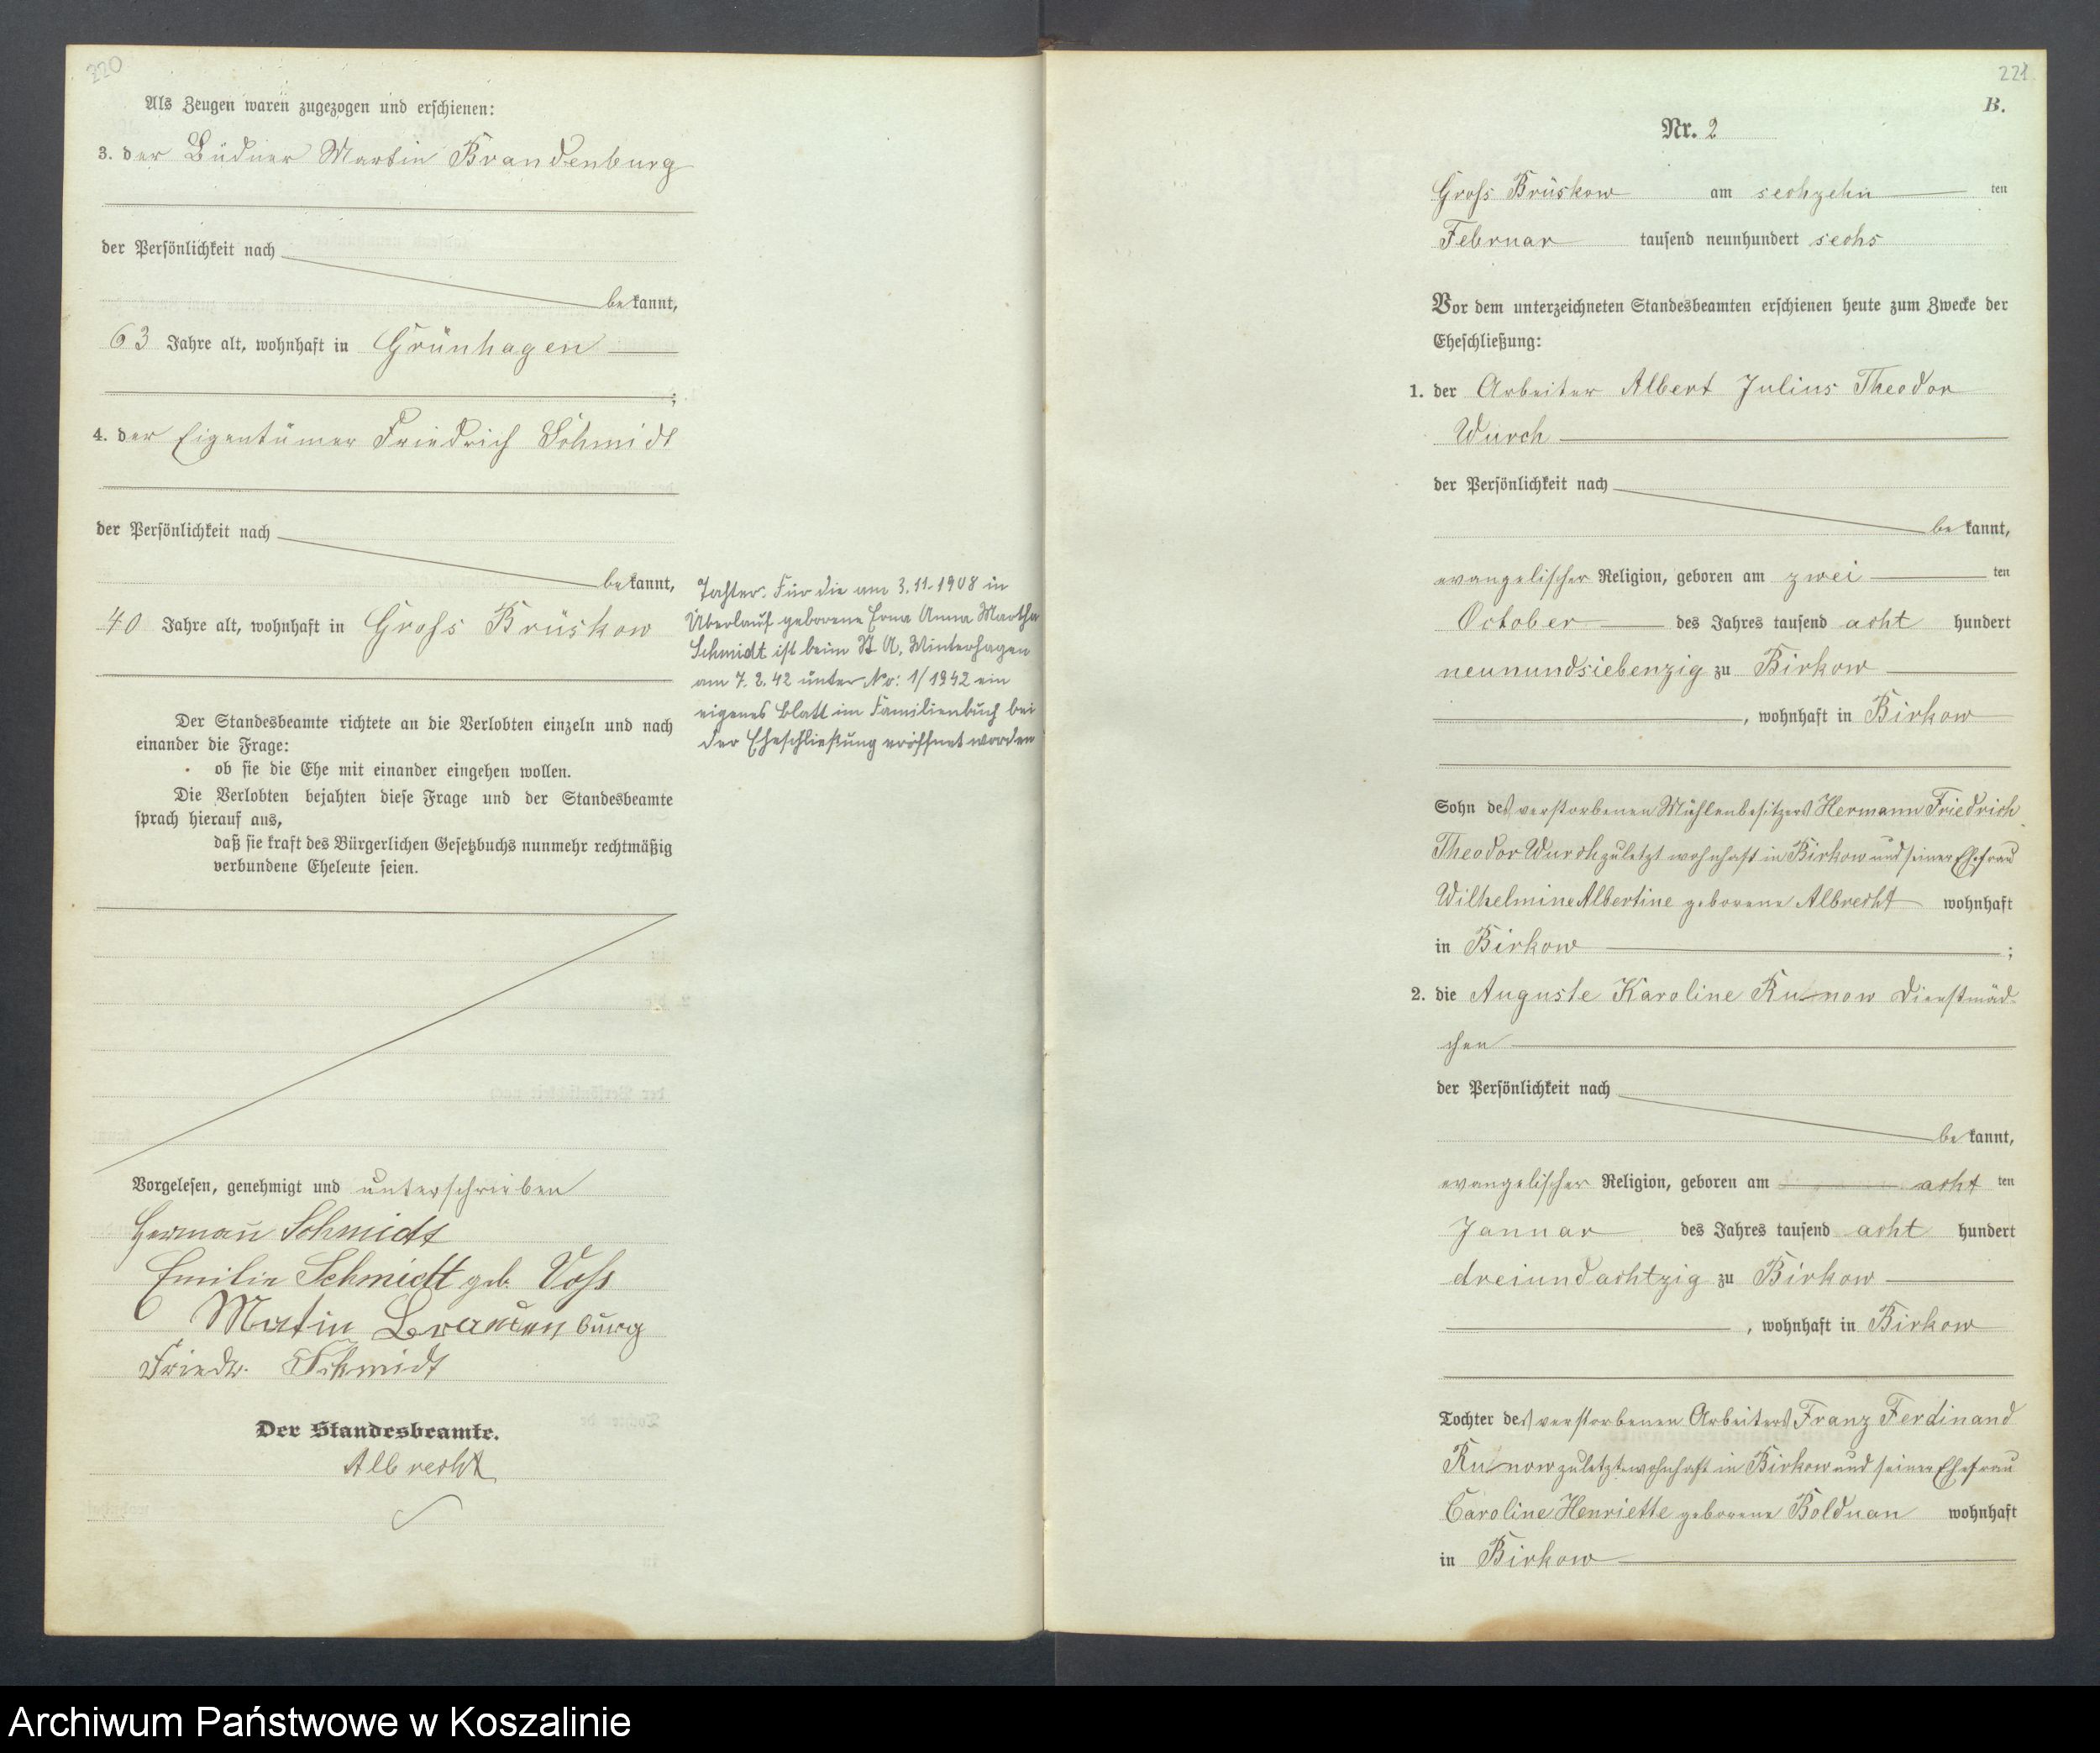 220
Als Zeugen waren zugezogen und erschienen:
3. der Büdner Martin Brandenburg
der Persönlichkeit nach
bekannt,
63 Jahre alt, wohnhaft in Grünhagen
;
4. der Eigentümer Friedrich Schmidt
der Persönlichkeit nach
bekannt,
40 Jahre alt, wohnhaft in Gross Brüskow
Der Standesbeamte richtete an die Verlobten einzeln und nach
einander die Frage:
ob sie die Ehe mit einander eingehen wollen.
Die Verlobten bejahten diese Frage und der Standesbeamte
sprach hierauf aus,
daß sie kraft des Bürgerlichen Gesetzbuchs nunmehr rechtmäßig
verbundene Eheleute seien.
Vorgelesen, genehmigt und unterschrieben
Herman̄ Schmidt
Emilie Schmidt geb. Voss
Matin Brandenburg
Friedr. Schmidt
Der Standesbeamte.
Albrecht
Tochter. Für die am 3.11.1908 in
Überlauf geborene Erna Anna Martha
Schmidt ist beim St A. Winterhagen
am 7.2.42 unter No: 1/1942 ein
eigenes Blatt im Familienbuch bei
der Eheschließung eröffnet worden
221
B.
Nr. 2
Gross Brüskow am sechzehn ten
Februar tausend neunhundert sechs
Vor dem unterzeichneten Standesbeamten erschienen heute zum Zwecke der
Eheschließung:
1. der Arbeiter Albert Julius Theodor
Wurch
der Persönlichkeit nach
bekannt,
evangelischer Religion, geboren am zwei ten
October des Jahres tausend acht hundert
neunundsiebenzig zu Birkow
, wohnhaft in Birkow
Sohn des verstorbenen Mühlenbesitzers Hermann Friedrich
Theodor Wurch zuletzt wohnhaft in Birkow und seiner Ehefrau
Wilhelmine Albertine geborene Albrecht wohnhaft
in Birkow ;
2. die Auguste Karoline Runow Dienstmäd-
chen
der Persönlichkeit nach
bekannt,
evangelischer Religion, geboren am acht ten
Januar des Jahres tausend acht hundert
dreiundachtzig zu Birkow
, wohnhaft in Birkow
Tochter des verstorbenen Arbeiters Franz Ferdinand
Runow zuletzt wohnhaft in Birkow und seiner Ehefrau
Caroline Henriette geborene Balduan wohnhaft
in Birkow
Archiwum Państwowe w Koszalinie